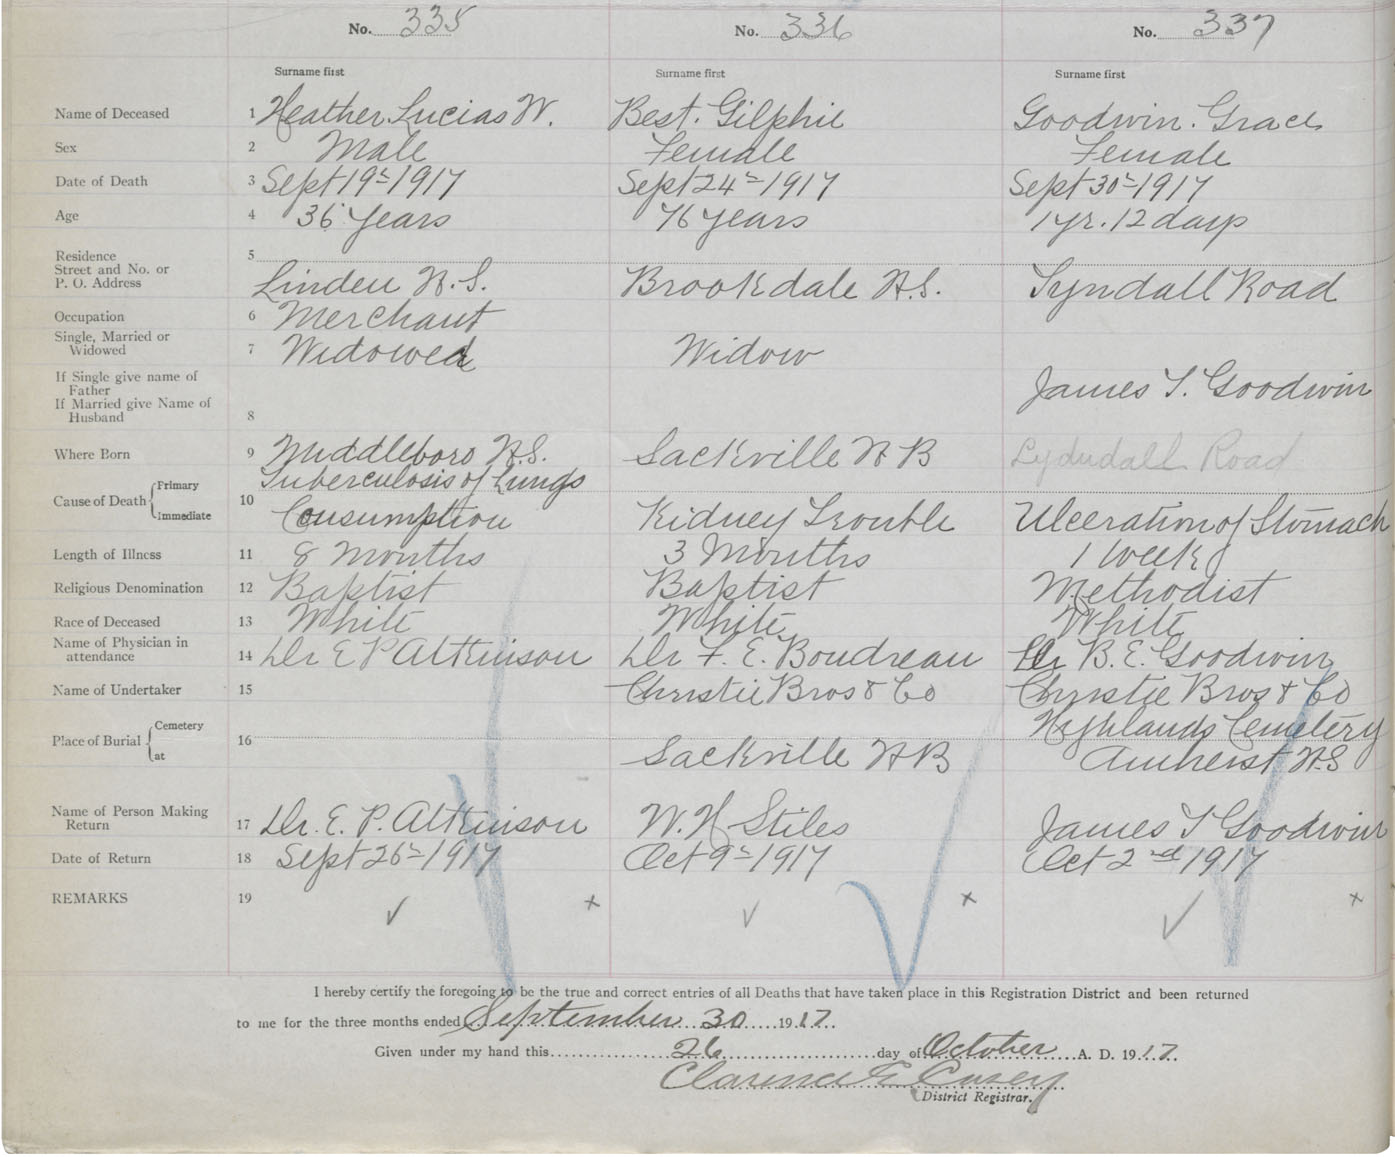 No. 335 No. 336 No. 337
Surname first Surname first Surname first
Name of Deceased 1 Heather Lucias W. Best. Gilphie Goodwin. Grace
Sex 2 Male Female Female
Date of Death 3 Sept 19th 1917 Sept 24th 1917 Sept 30th 1917
Age 4 36 Years 76 years 1 yr. 12 days
Residence 5
Street and No. or
P. O. Address Linden N.S. Brookdale N.S. Tyndall Road
Occupation 6 Merchant
Single, Married or
Widowed 7 Widowed Widow
If Single give name of
Father James T. Goodwin
If Married give Name of
Husband 8
Where Born 9 Middleboro N.S. Sackville N B Lydndall Road
Cause of Death { Primary Tuberculosis of Lungs
Immediate 10 Consumption Kidney Trouble Ulceration of Stomach
Length of Illness 11 8 Months 3 Months 1 week
Religious Denomination 12 Baptist Baptist Methodist
Race of Deceased 13 White White White
Name of Physician in
attendance 14 Dr E P Altkinson Dr F. E. Boudreau Dr B. E. Goodwin
Name of Undertaker 15 Christie Bros & Co Christie Bros & Co
Place of Burial { Cemetery Highlands Cemetery
at 16 Sackville N B Amherst N.S
Name of Person Making
Return 17 Dr. E. P. Altkinson W. H Stiles James T Goodwin
Date of Return 18 Sept 26th 1917 Oct 9th 1917 Oct 2nd 1917
REMARKS 19 ✓ x ✓ x ✓ x
I hereby certify the foregoing to be the true and correct entries of all Deaths that have taken place in this Registration District and been returned
to me for the three months ended September 30 1917.
Given under my hand this 26 day of October A. D. 1917.
Clarence E Casey
District Registrar.